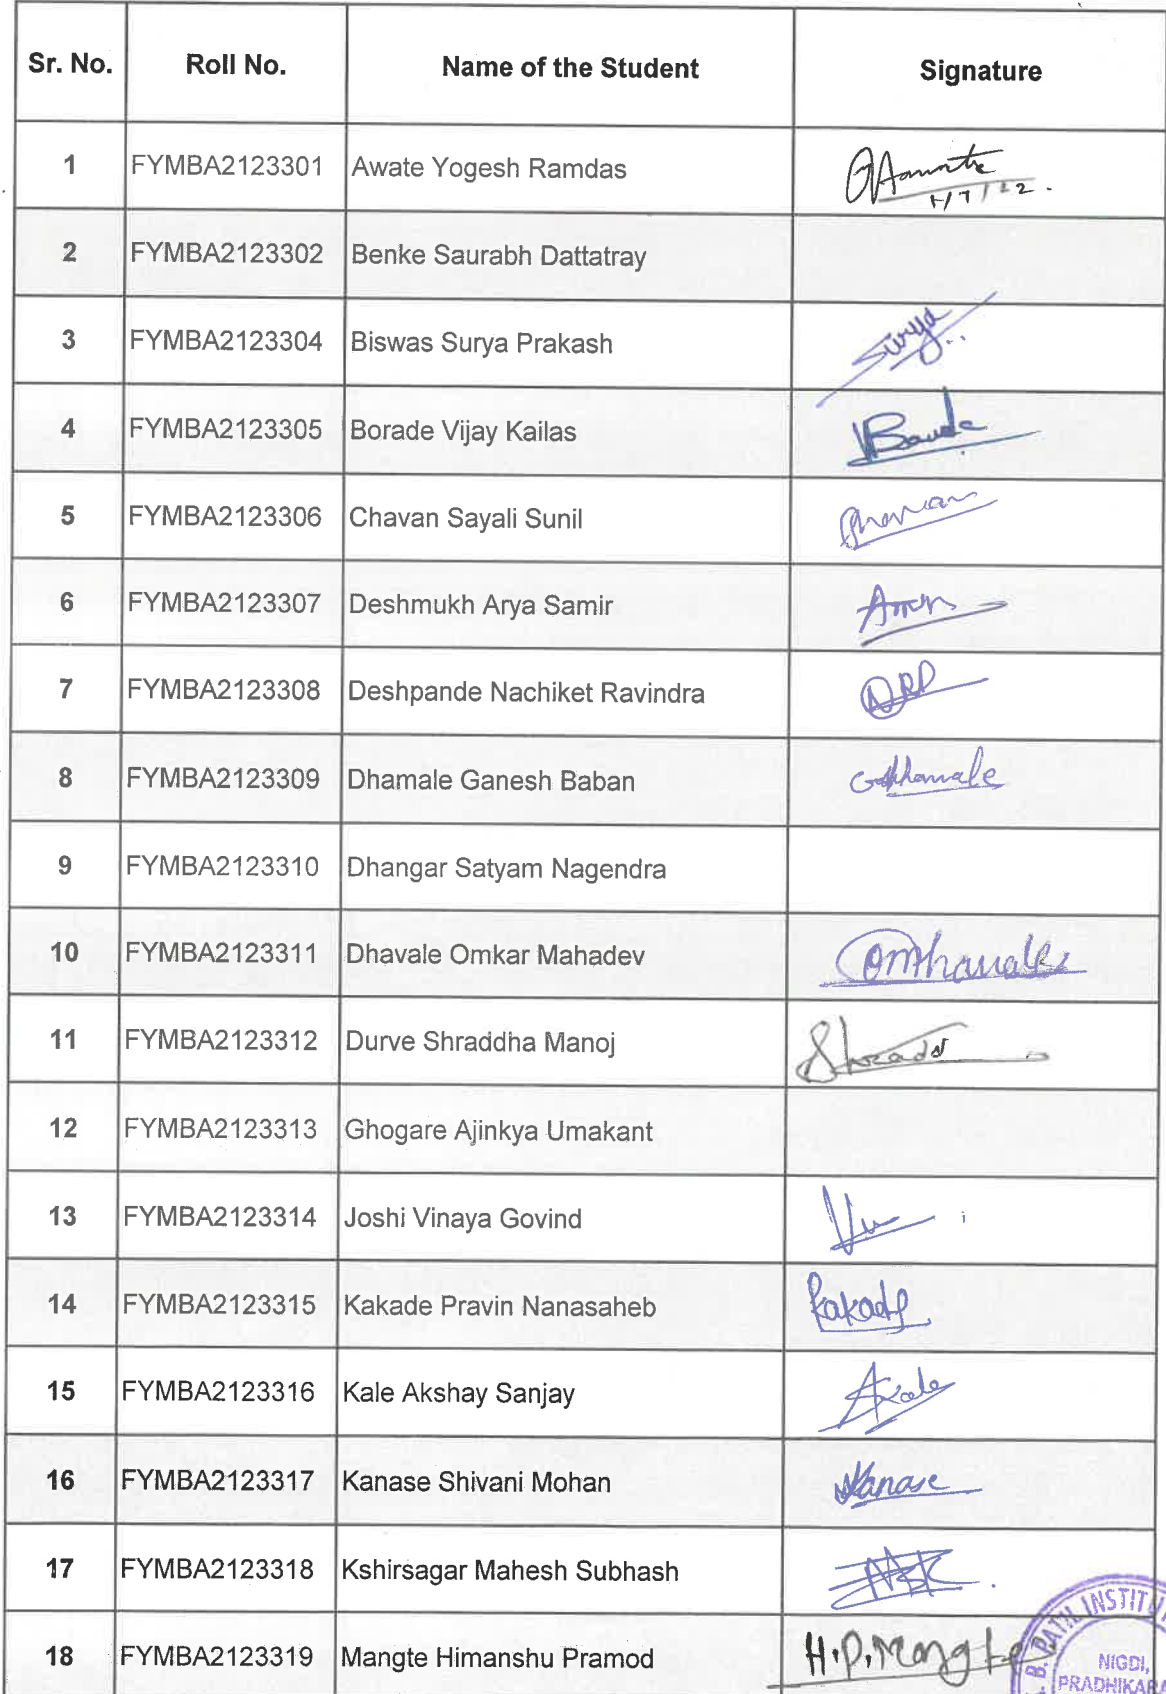 Sr. No. Roll No. Name of the Student Signature
1 FYMBA2123301 Awate Yogesh Ramdas
1/7/22.
2 FYMBA2123302 Benke Saurabh Dattatray
3 FYMBA2123304 Biswas Surya Prakash Surya
4 FYMBA2123305 Borade Vijay Kailas
5 FYMBA2123306 Chavan Sayali Sunil
6 FYMBA2123307 Deshmukh Arya Samir
7 FYMBA2123308 Deshpande Nachiket Ravindra NRD
8 FYMBA2123309 Dhamale Ganesh Baban GDhamale
9 FYMBA2123310 Dhangar Satyam Nagendra
10 FYMBA2123311 Dhavale Omkar Mahadev
11 FYMBA2123312 Durve Shraddha Manoj
12 FYMBA2123313 Ghogare Ajinkya Umakant
13 FYMBA2123314 Joshi Vinaya Govind
14 FYMBA2123315 Kakade Pravin Nanasaheb
15 FYMBA2123316 Kale Akshay Sanjay AKale
16 FYMBA2123317 Kanase Shivani Mohan SKanase
17 FYMBA2123318 Kshirsagar Mahesh Subhash
18 FYMBA2123319 Mangte Himanshu Pramod H.P.Mangte
B. PATIL INSTITU
NIGDI,
PRADHIKARA